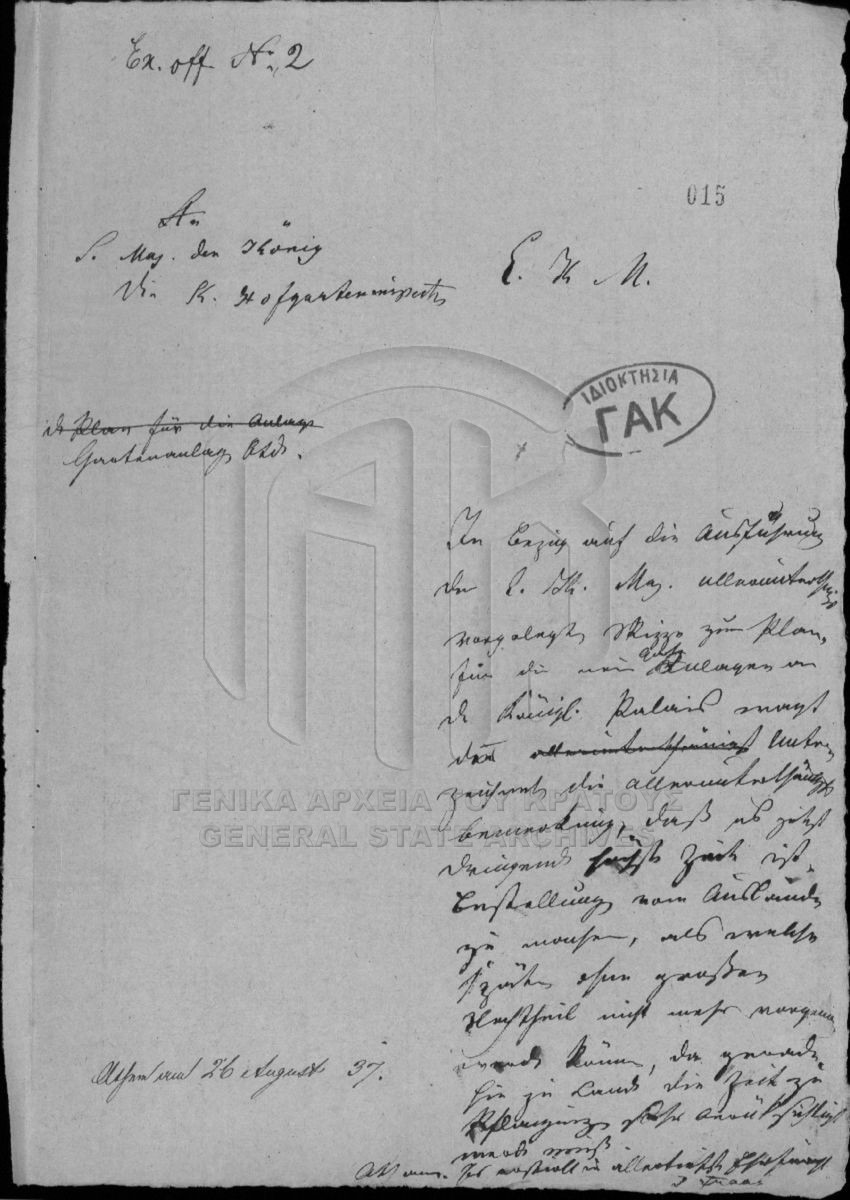 Ex. off. No. 2
015
An
S. Maj. den König
Die K. Hofgarteninspection
E. K. M.
ΙΔΙΟΚΤΗΣΙΑ
ΓΑΚ
d. Plan für die Anlage
Gartenanlag betr.
In Bezug auf die Ausführung
der E. K. Maj. allerunterthänigst
vorgelegten Skizze zum Plan
für die neuen Anlagen am
d. Königl. Palais wagt
der allerunterthänigst Unter
zeichnete die allerunterthänigste
Bemerkung, daß es jetzt
dringend höchste Zeit ist,
Bestellungen vom Auslande
zu machen, als welche
später ohne großen
Nachtheil nicht mehr
werden können, da gerade
hier zu Lande die Zeit zu
Pflanzungen sehr berücksichtigt
werden muß
Athen am 26 August 37.
allertiefster Ehrfurcht
Fraas
ΓΕΝΙΚΑ ΑΡΧΕΙΑ ΤΟΥ ΚΡΑΤΟΥΣ
GENERAL STATE ARCHIVES